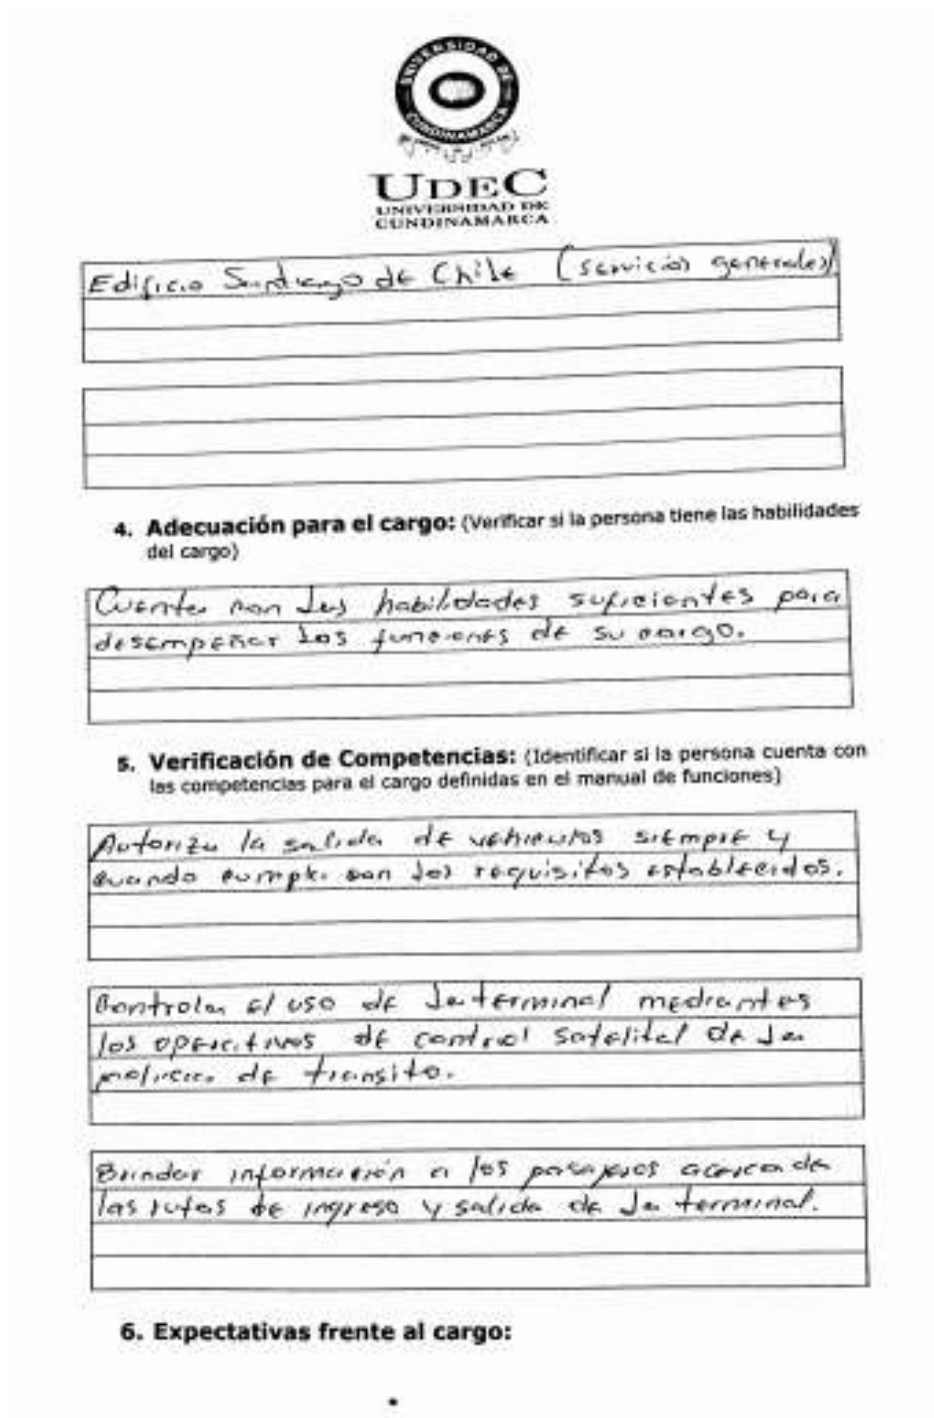 UNIVERSIDAD DE
CUNDINAMARCA
UDEC
UNIVERSIDAD DE
CUNDINAMARCA
Edificio Santiago de Chile (servicios generales)
4. Adecuación para el cargo: (Verificar si la persona tiene las habilidades
del cargo)
Cuenta con las habilidades suficientes para
desempeñar las funciones de su cargo.
5. Verificación de Competencias: (Identificar si la persona cuenta con
las competencias para el cargo definidas en el manual de funciones)
Autoriza la salida de vehiculos siempre y
cuando cumpla con los requisitos establecidos.
Controlar el uso de la terminal mediantes
los operativos de control satelital de la
policia de transito.
Brindar información a los pasajeros acerca de
las rutas de ingreso y salida de la terminal.
6. Expectativas frente al cargo: